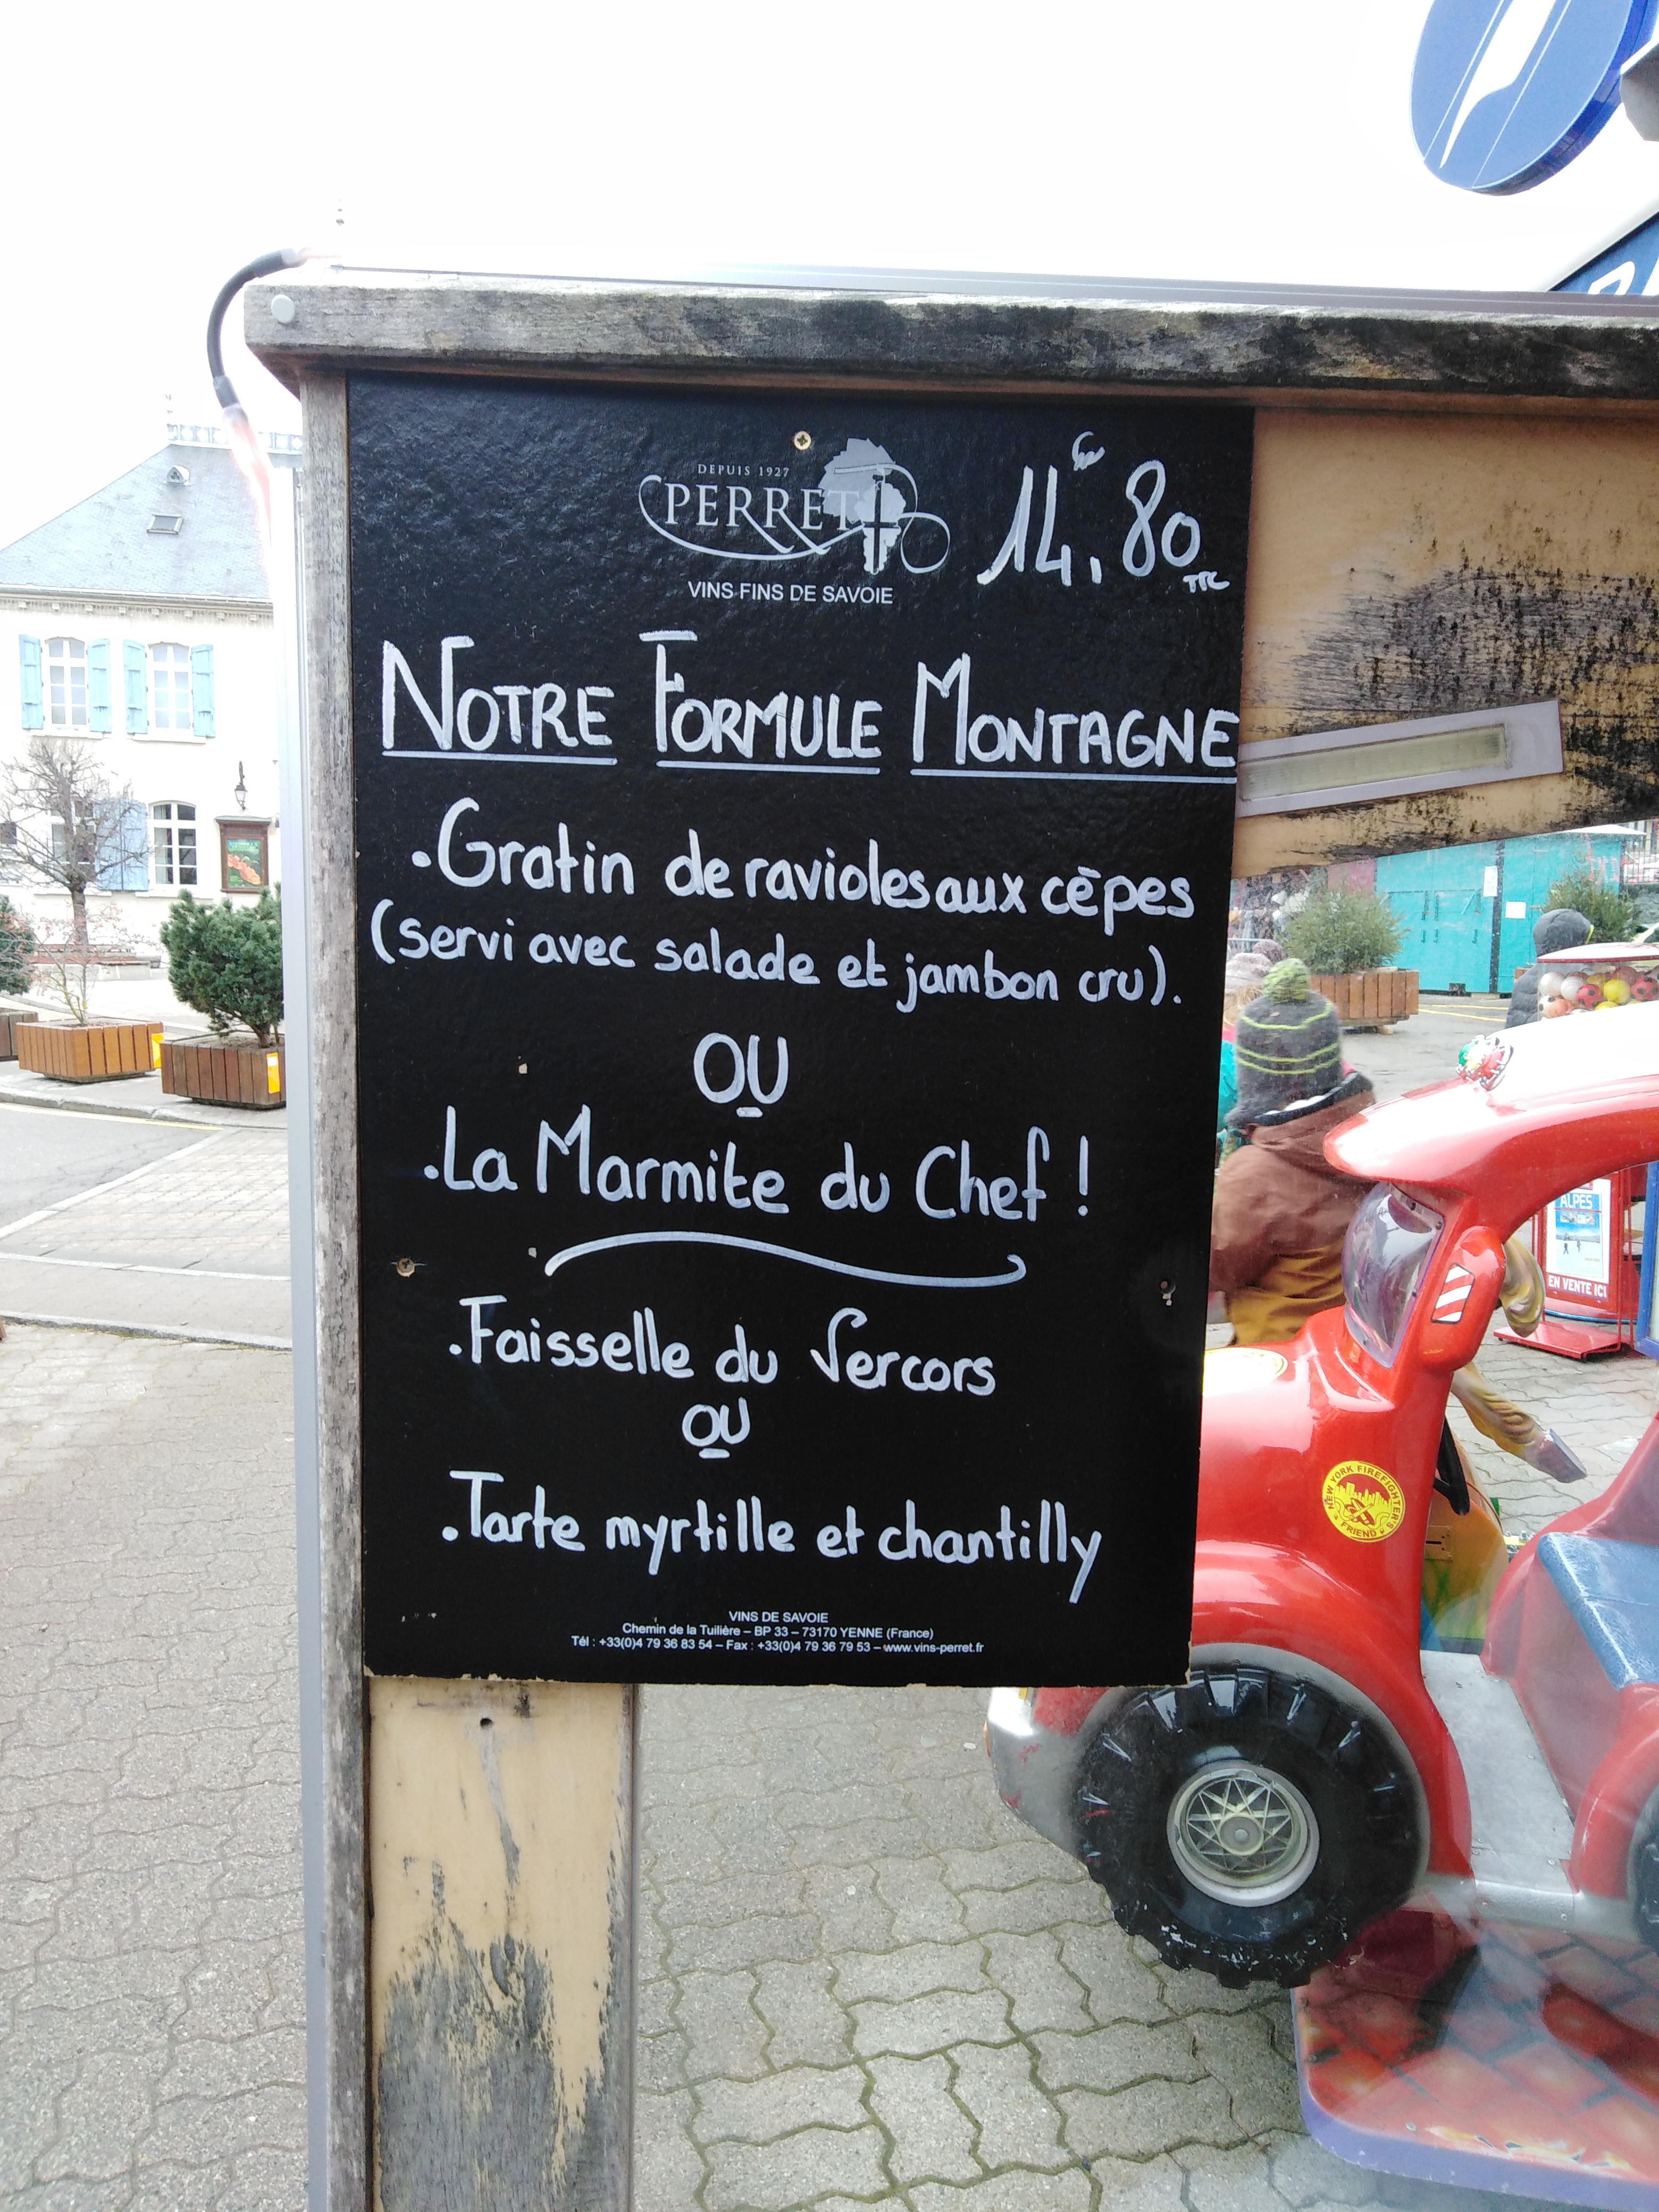 DEPUIS 1927
PERRET
VINS FINS DE SAVOIE
14,80
TTC
NOTRE FORMULE MONTAGNE
.Gratin de ravioles aux cèpes
(servi avec salade et jambon cru).
OU
.La Marmite du Chef !
.Faisselle du Vercors
OU
.Tarte myrtille et chantilly
VINS DE SAVOIE
Chemin de la Tuilière – BP 33 – 73170 YENNE (France)
Tél : +33(0)4 79 36 83 54 – Fax : +33(0)4 79 36 79 53 – www.vins-perret.fr
ALPES
EN VENTE ICI
NEW YORK FIREFIGHTER'S
FRIEND